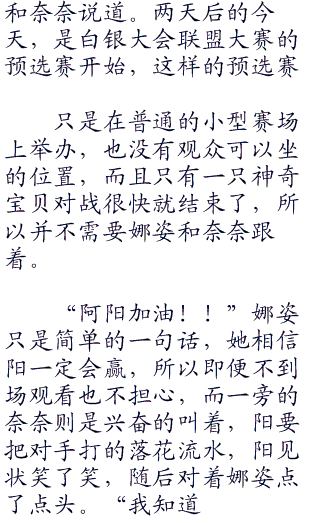 和奈奈说道。两天后的今
天，是白银大会联盟大赛的
预选赛开始，这样的预选赛
只是在普通的小型赛场
上举办，也没有观众可以坐
的位置，而且只有一只神奇
宝贝对战很快就结束了，所
以并不需要娜姿和奈奈跟
着。
“阿阳加油！！”娜姿
只是简单的一句话，她相信
阳一定会赢，所以即便不到
场观看也不担心，而一旁的
奈奈则是兴奋的叫着，阳要
把对手打的落花流水，阳见
状笑了笑，随后对着娜姿点
了点头。“我知道